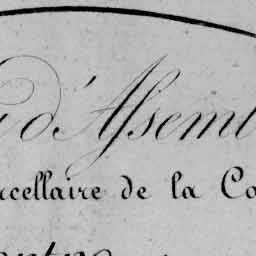 d'Assemb
rcellaire de la Co